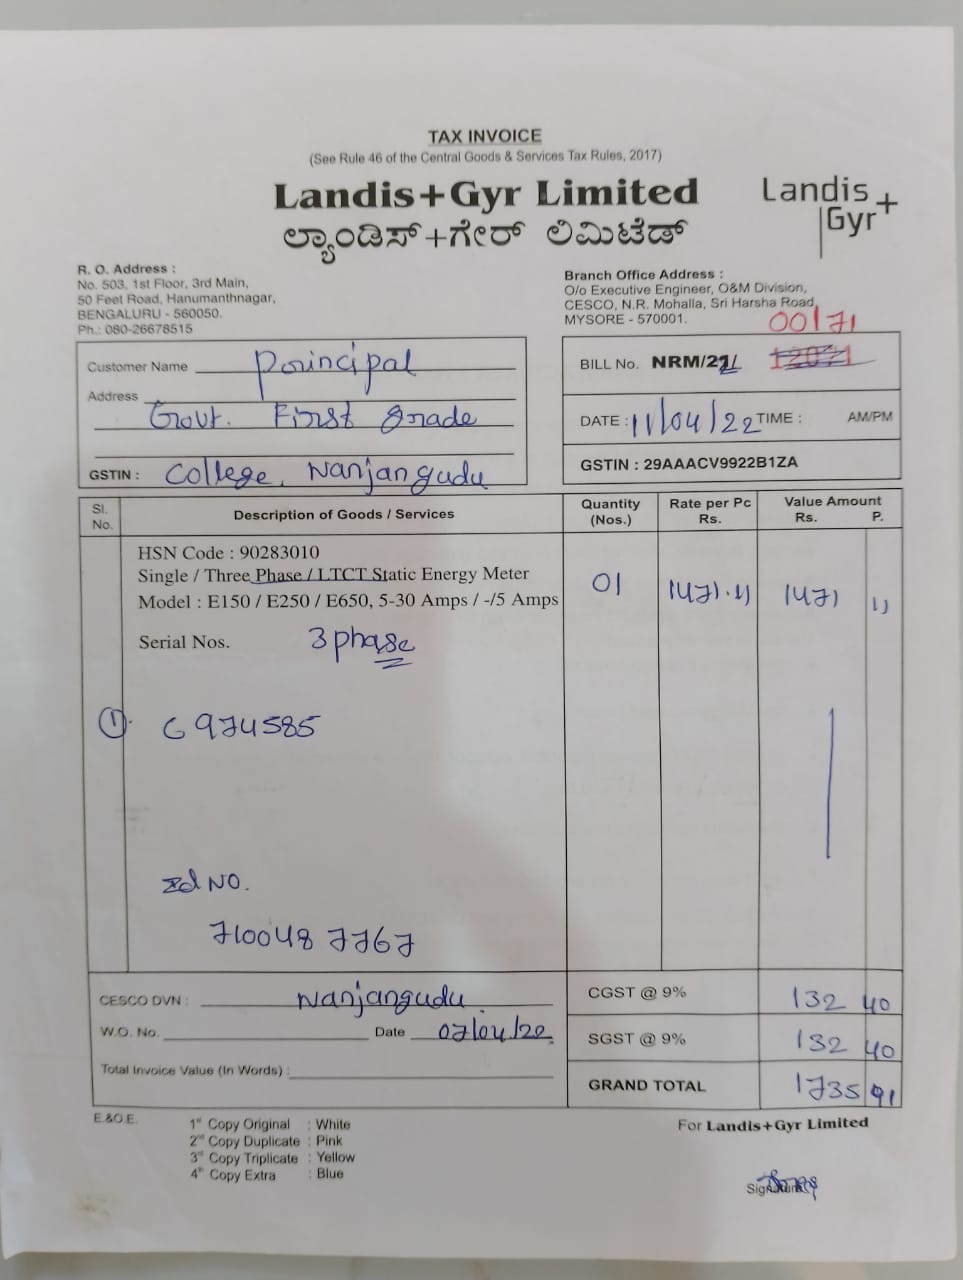 TAX INVOICE
(See Rule 46 of the Central Goods & Services Tax Rules, 2017)
Landis+Gyr Limited
ಲ್ಯಾಂಡಿಸ್+ಗೇರ್ ಲಿಮಿಟೆಡ್
Landis
Gyr+
R. O. Address :
No. 503, 1st Floor, 3rd Main,
50 Feet Road, Hanumanthnagar,
BENGALURU - 560050.
Ph.: 080-26678515
Branch Office Address :
O/o Executive Engineer, O&M Division,
CESCO, N.R. Mohalla, Sri Harsha Road,
MYSORE - 570001.
00171
Customer Name Principal
Address
Govt. First grade
GSTIN : College, Nanjangudu
BILL No. NRM/22/
DATE : 11/04/22 TIME : AM/PM
GSTIN : 29AAACV9922B1ZA
Sl. No. Description of Goods / Services Quantity (Nos.) Rate per Pc Rs. Value Amount Rs. P.
HSN Code : 90283010
Single / Three Phase / LTCT Static Energy Meter 01 1471.11 1471 11
Model : E150 / E250 / E650, 5-30 Amps / -/5 Amps
Serial Nos. 3 phase
1 6974585
Id NO.
7100487767
CESCO DVN : Nanjangudu
W.O. No. Date 07/04/22
Total Invoice Value (In Words) :
CGST @ 9% 132 40
SGST @ 9% 132 40
GRAND TOTAL 1735 91
E.&O.E.
1st Copy Original : White
2nd Copy Duplicate : Pink
3rd Copy Triplicate : Yellow
4th Copy Extra : Blue
For Landis+Gyr Limited
Signature